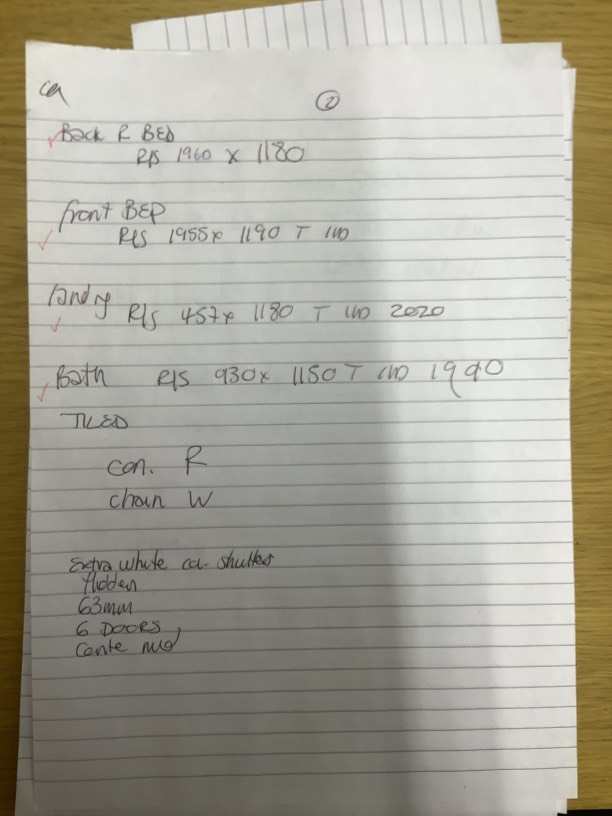 ca
2
Back R BED
R/S 1960 x 1180
front BED
R/S 1955 x 1190 T
landing
R/S 457 x 1180 T 2020
Bath R/S 930 x 1150 T 1990
TILED
con. R
chain W
Extra white shutters
Hidden
63mm
6 DOORS,